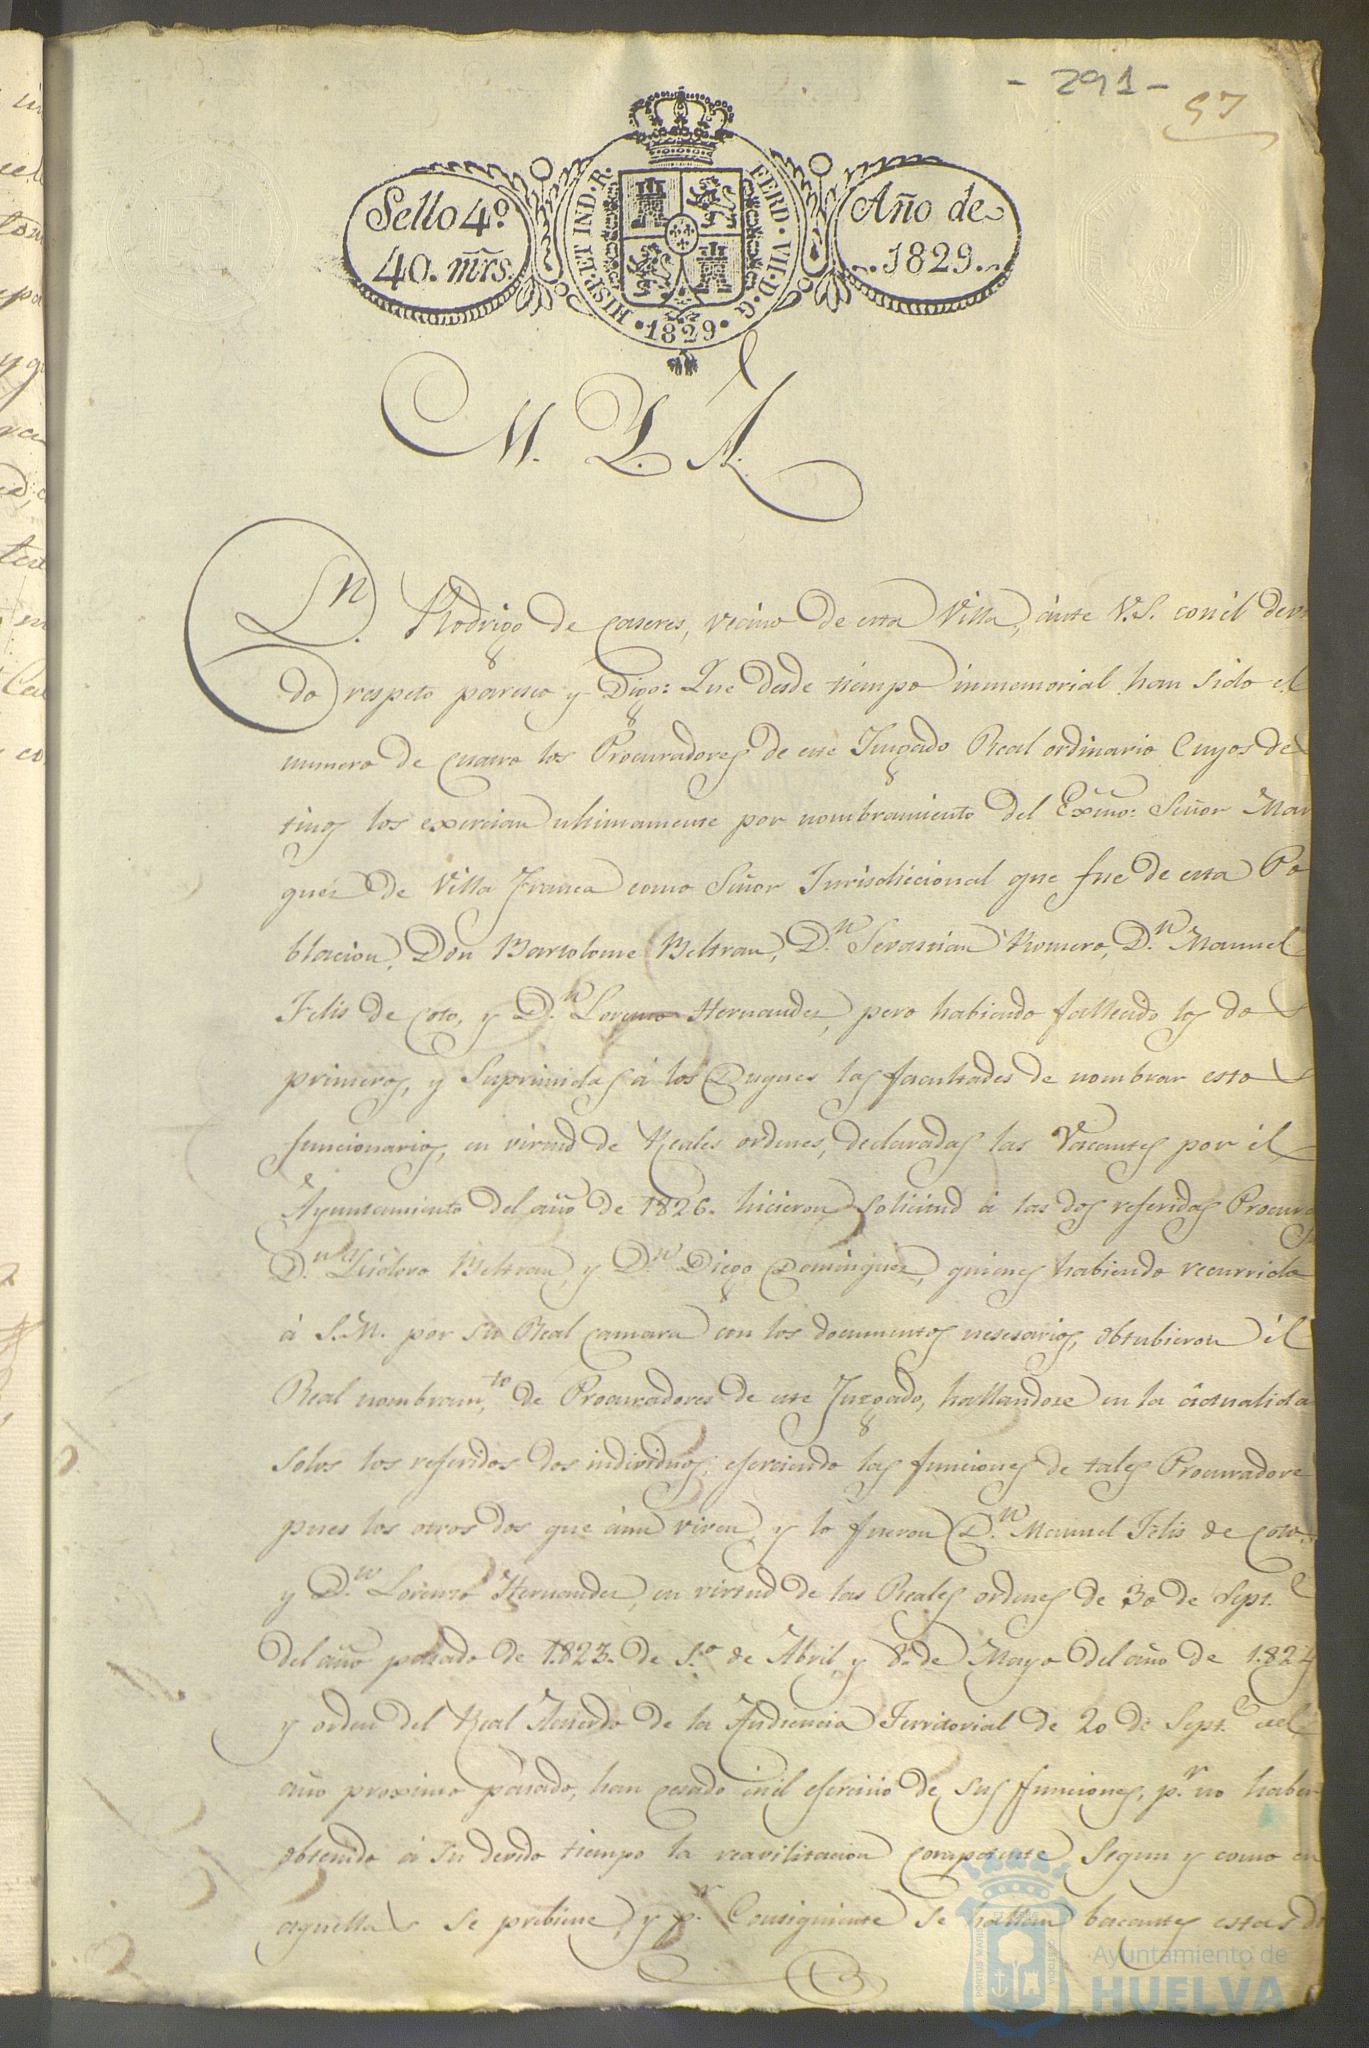 - 291 -
97
Sello 4º
40. mrs.
HISP. ET IND. R.
FERD. VII. D. G.
1829
Año de
1829.
M. Y. A.
Dn. Rodrigo de Caseres, vecino de esta Villa, ánte V.S. con él devi
do respeto paresco y Digo: Que desde tiempo inmemorial han sido el
numero de cuatro los Procuradores de este Juzgado Real ordinario Cuyos des
tinos los exercian ultimamente por nombramiento del Exmo: Señor Mar
qués de Villa Franca como Señor Jurisdiccional que fue de esta Po
blacion, Don Bartolome Beltran, D.n Sevastian Romero, D.n Manuel
Felis de Coto, y D.n Lorenzo Hernandez, pero habiendo fallecido los dos
primeros, y Suprimidas á los Duques las facultades de nombrar estos
funcionarios, en virtud de Reales ordenes, declaradas las Vacantes por él
Ayuntamiento del año de 1826. hicieron solicitud á las dos referidas Procuras
D.n Isidoro Beltran, y D.n Diego Dominguez, quienes habiendo recurrido
á S.M. por su Real Camara con los documentos nesesarios, obtubieron él
Real nombram.to de Procuradores de este Juzgado, hallandose en la áctualida
solos los referidos dos individuos, eferciendo las funciones de tales Procuradore
pues los otros dos que áun viven, y lo fueron D.n Manuel Felis de Coto,
y D.n Lorenzo Hernandez, en virtud de las Reales ordenes de 30 de Sept.e
del año pasado de 1.823. de 1.o de Abril, y 8. de Mayo del año de 1.824
y orden del Real Acuerdo de la Audiencia Territorial de 20 de Sept.e del
año proximo pasado, han cesado en él efercicio de sus funciones, p.r no haber
obtenido á su devido tiempo la reavilitacion competente, Segun y como en
aquellas se prebiene, y p.r Consiguiente se hallan bacantes estas d
Ayuntamiento de
HUELVA